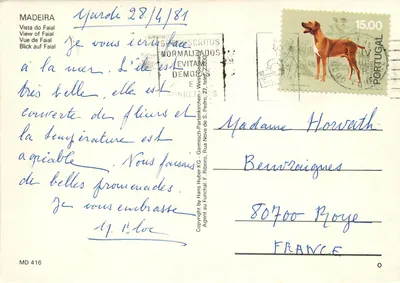 MADEIRA
Vista do Faial
View of Faial
Vue de Faial
Blick auf Faial
Mardi 28/4/81
Je vous écris face
à la mer. L'île est
très belle, elle est
couverte de fleurs et
la température est
agréable. Nous faisons
de belles promenades.
Je vous embrasse
MD 416
Copyright by Hans Huber KG - Garmisch-Partenkirchen
Agent au Funchal: F. Ribeiro, Rua Nova de S. Pedro, 27
NORMALIZADOS
EVITAM
DEMORAS
E
15.00
PORTUGAL
Madame Horvath
Beuvraignes
80700 Roye
FRANCE